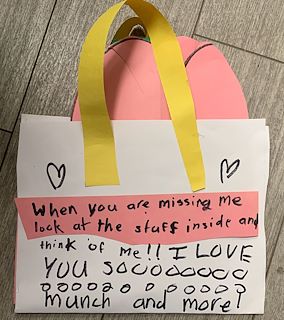 When you are missing me
look at the stuff inside and
think of me!! I LOVE
YOU SOOOOOOOOO
OOOOOOOOOOOO
munch and more!